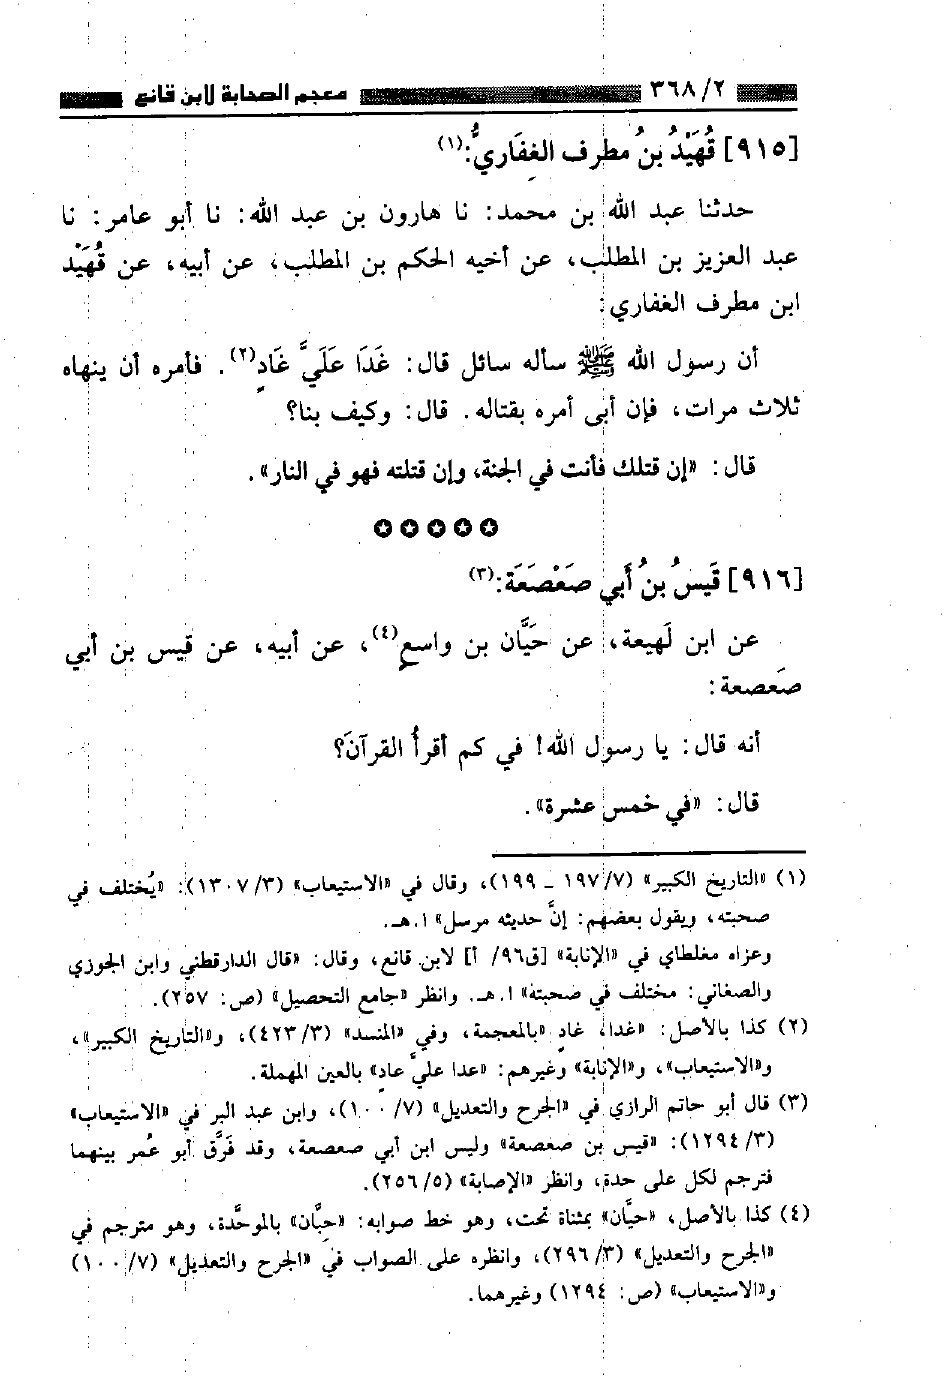 ٣٦٨/٢ معجم الصحابة لابن قانع
[٩١٥] قُهَيْدُ بنُ مطرف الغِفَاريُّ:(١)
حدثنا عبد الله بن محمد: نا هارون بن عبد الله: نا أبو عامر: نا
عبد العزيز بن المطلب، عن أخيه الحكم بن المطلب، عن أبيه، عن قُهَيْد
ابن مطرف الغفاري:
أن رسول الله ﷺ سأله سائل قال: غَدَا عَلَيَّ غَادٍ(٢). فأمره أن ينهاه
ثلاث مرات، فإن أبى أمره بقتاله. قال: وكيف بنا؟
قال: «إن قتلك فأنت في الجنة، وإن قتلته فهو في النار».
✪✪✪✪✪
[٩١٦] قَيسُ بنُ أَبي صَعْصَعَة:(٣)
عن ابن لَهيعة، عن حَيَّان بن واسعٍ(٤)، عن أبيه، عن قيس بن أبي
صَعصعة:
أنه قال: يا رسول الله! في كم أقرأُ القرآنَ؟
قال: «في خمس عشرة».
(١) «التاريخ الكبير» (٧/ ١٩٧ ـ ١٩٩)، وقال في «الاستيعاب» (٣/ ١٣٠٧): «يُختلف في
صحبته، ويقول بعضهم: إنَّ حديثه مرسل» ا.هـ.
وعزاه مغلطاي في «الإنابة» [ق٩٦/ أ] لابن قانع، وقال: «قال الدارقطني وابن الجوزي
والصغاني: مختلف في صحبته» ا.هـ. وانظر «جامع التحصيل» (ص: ٢٥٧).
(٢) كذا بالأصل: «غدا، غادٍ «بالمعجمة، وفي «المنسد» (٣/ ٤٢٣)، و«التاريخ الكبير»،
و«الاستيعاب»، و«الإنابة» وغيرهم: «عدا عليَّ عادٍ» بالعين المهملة.
(٣) قال أبو حاتم الرازي في «الجرح والتعديل» (٧/ ١٠٠)، وابن عبد البر في «الاستيعاب»
(٣/ ١٢٩٤): «قيس بن صعصعة» وليس ابن أبي صعصعة، وقد فَرَّق أبو عُمر بينهما
فترجم لكل على حدة، وانظر «الإصابة» (٥/ ٢٥٦).
(٤) كذا بالأصل، «حيَّان» بمثناة تحت، وهو خط صوابه: «حبَّان» بالموحَّدة، وهو مترجم في
«الجرح والتعديل» (٣/ ٢٩٦)، وانظره على الصواب في «الجرح والتعديل» (٧/ ١٠٠)
و«الاستيعاب» (ص: ١٢٩٤) وغيرهما.